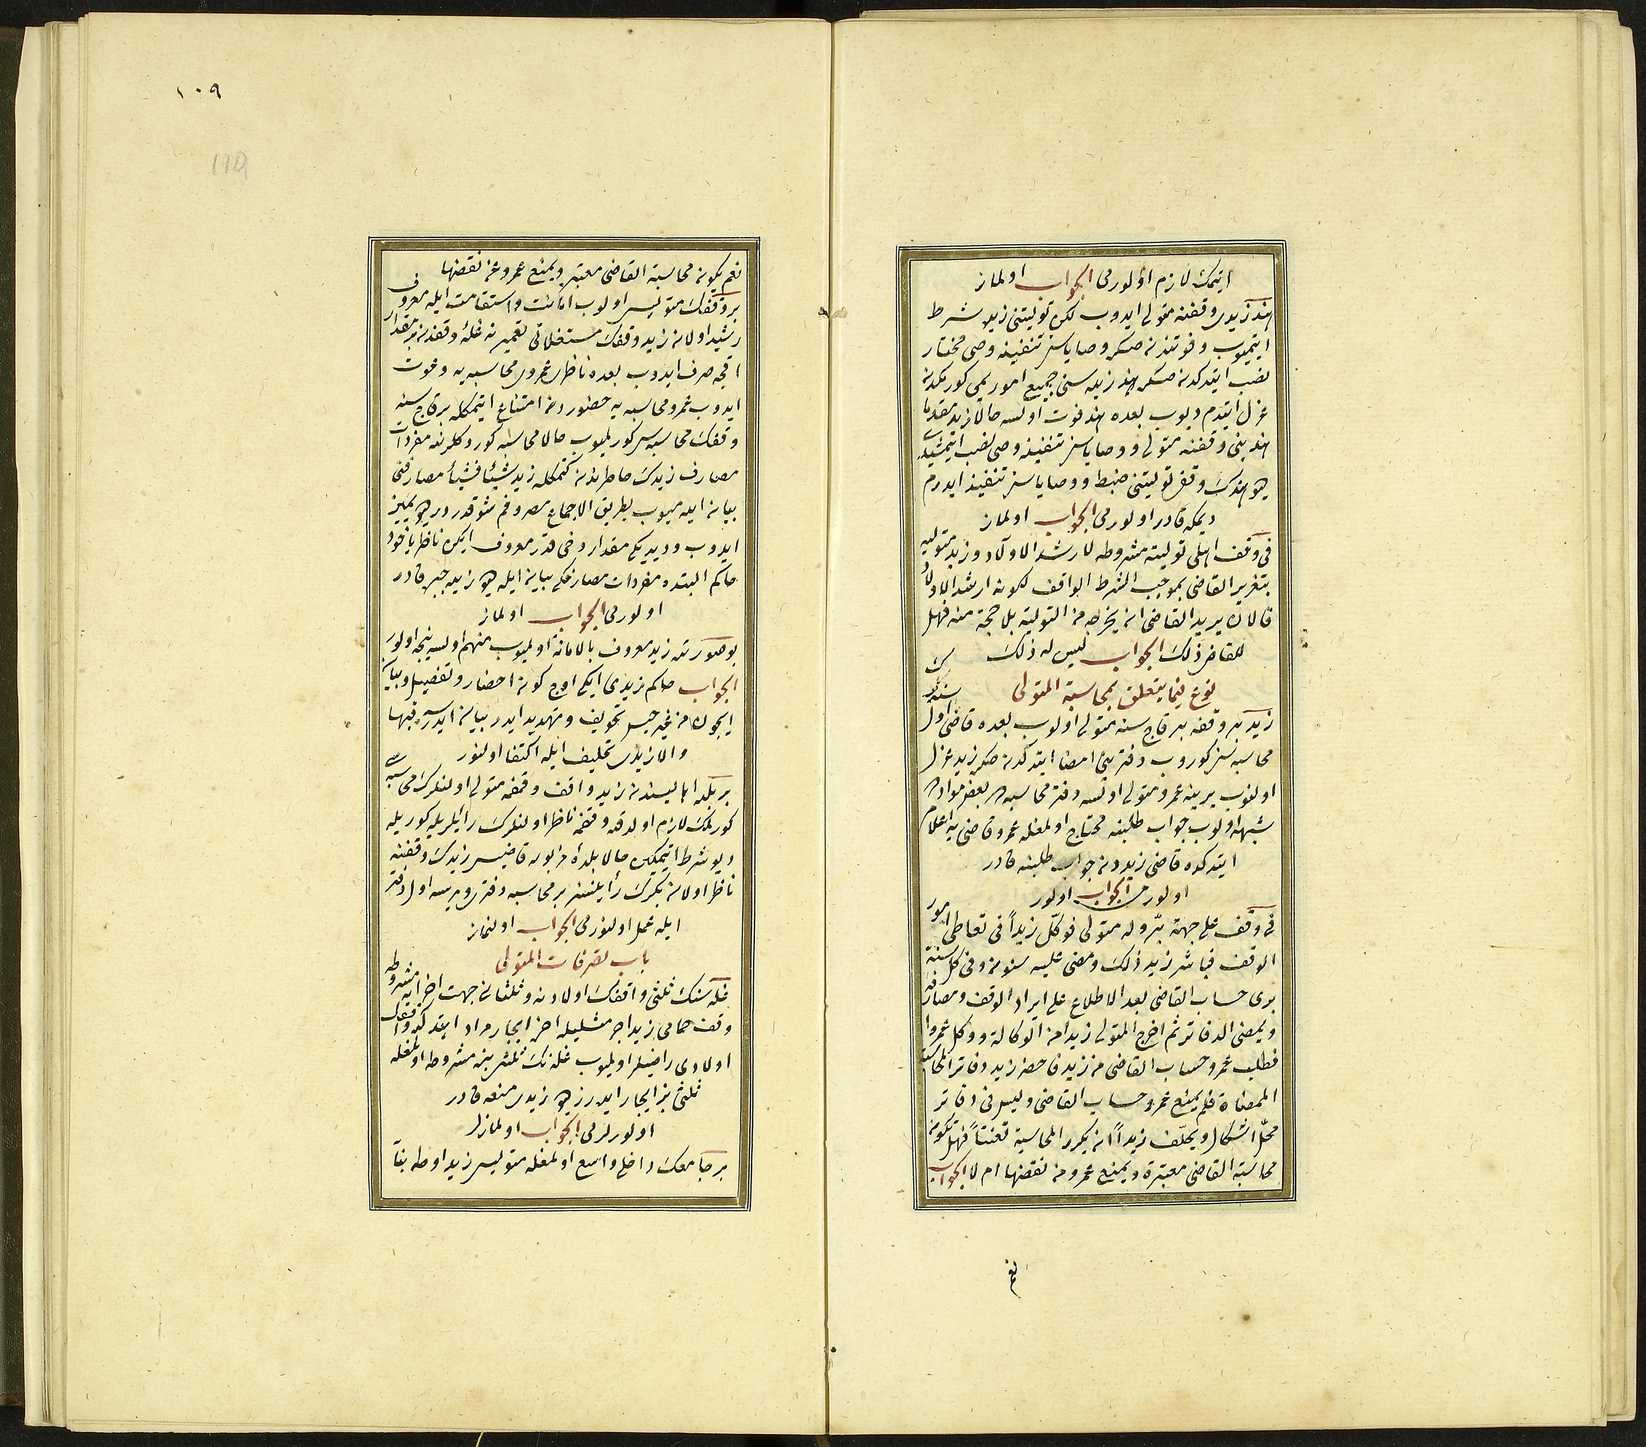 ایتمك لازم اولورمی الجواب اولماز
هند زیدی وقفنه متولی ایدوب لكن تولیتنی زیده شرط
ایتمیوب وفوتندن صكره وصایاسنی تنفیذه وصی مختار
نصب ایتدكدن صكره هند زیده سنی جمیع امورمی كورمكدن
عزل ایتدم دیوب بعده هند فوت اولسه حالا زید مقدما
هند بنی وقفنه متولی و وصایاسنی تنفیذه وصی نصب ایتمشیدی
هندك وقفی تولیتنی ضبط و وصایاسنی تنفیذ ایدرم
دیمكه قادر اولورمی الجواب اولماز
فی وقف اهلی تولیته مشروطه لارشد الاولاد وزید متولیه
بتقریر القاضی بموجب الشرط الواقف لكونه ارشد الاولاد
فالان یرید القاضی ان یخرجه من التولیة بلا جنحة منه فهل
للقاضی ذلك الجواب لیس له ذلك
نوع فیما یتعلق بمحاسبة المتولی
زید بر وقفه بر قاچ سنه متولی اولوب بعده قاضی اول سنه‌لرك
محاسبه‌سنی كوروب دفترینی امضا ایتدكدن صكره زید عزل
اولنوب یرینه عمرو متولی اولسه دفتر محاسبه‌ده بعض مواده
شبهه اولوب جواب طلبنه محتاج اولمغله عمرو قاضی‌یه اعلام
ایتدكده قاضی زیددن جواب طلبنه قادر
اولورمی الجواب اولور
فی وقف علی جهة بر وله متولی فوكل زیداً فی تعاطی امور
الوقف فباشر زید ذلك ومضی علیه سنون وفی كل سنة
یری حساب القاضی بعد الاطلاع علی ایراد الوقف ومصارفه
ویمضی الدفاتر ثم اخرج المتولی زیدا من الوكالة ووكل عمروا
فطلب عمرو حساب القاضی من زید فاحضر زید دفاتر المحاسبة
الممضاة فلم یمنع عمرو حساب القاضی ولیس فی دفاتر
محل اشكال ویحلف زیداً ان یكرر المحاسبة تعنتاً فهل تكون
محاسبة القاضی معتبرة ویمنع عمرو من نقضها ام لا الجواب
نعم
١٠٩
نعم یكون محاسبة القاضی معتبر ویمنع عمرو عن نقضها
بر وقفك متولیسی اولوب امانت واستقامت ایله معروف
رشید اولان زید وقفك مستغلاتی تعمیرنه غله وقفدن بر مقدار
اقچه صرف ایدوب بعده ناظری عمروی محاسبه‌یه دعوت
ایدوب عمرو محاسبه‌یه حضوردن امتناع ایتمكله بر قاچ سنه
وقفك محاسبه‌سی كورلمیوب حالا محاسبه كوردكلرنده مفردات
مصارف زیدك خاطرندن كتمكله زید شیئا فشیئا مصارفنی
بیان ایلیمیوب بطریق الاجماع مصروفم شو قدردر دیو یمین
ایدوب ودیدیكی مقدار دخی قدر معروف ایكن ناظر یا خود
حاكم البتده مفردات مصارفكی بیان ایله دیو زیده جبره قادر
اولورمی الجواب اولماز
بو صورتده زید معروف بالامانة اولمیوب متهم اولسه نیجه اولور
الجواب حاكم زیدی ایكی اوچ كون احضار وتفصیل وبیان
ایچون من غیر حبس تخویف وتهدید ایدر بیان ایدرسه فبها
والا زیدی تحلیف ایله اكتفا اولنور
بر بلده اهالیسندن زید واقف وقفنه متولی اولنلرك محاسبه‌سی
كورلمك لازم اولدقده وقفنه ناظر اولنلرك رأیلریله كوریله
دیو شرط ایتمیكن حالا بلدهٔ مزبوره قاضیسی زیدك وقفنه
ناظر اولان بكرك رأیلنسز بر محاسبه دفتری ویرسه اول دفتر
ایله عمل اولنورمی الجواب اولنماز
باب تصرفات المتولی
غله‌سنك ثلثی واقفك اولادنه وثلثانی جهت اخرایه مشروطه
وقف حمامی زید اجر مثلیله اخره ایجار مراد ایتدكده واقفك
اولادی راضیلر اولمیوب غله‌نك ثلثی بزه مشروطه اولمغله
ثلثنی بز ایجار ایدرز دیو زیدی منعه قادر
اولورلرمی الجواب اولمازلر
بر جامعك داخلی واسع اولمغله متولیسی زید اوطه بنا